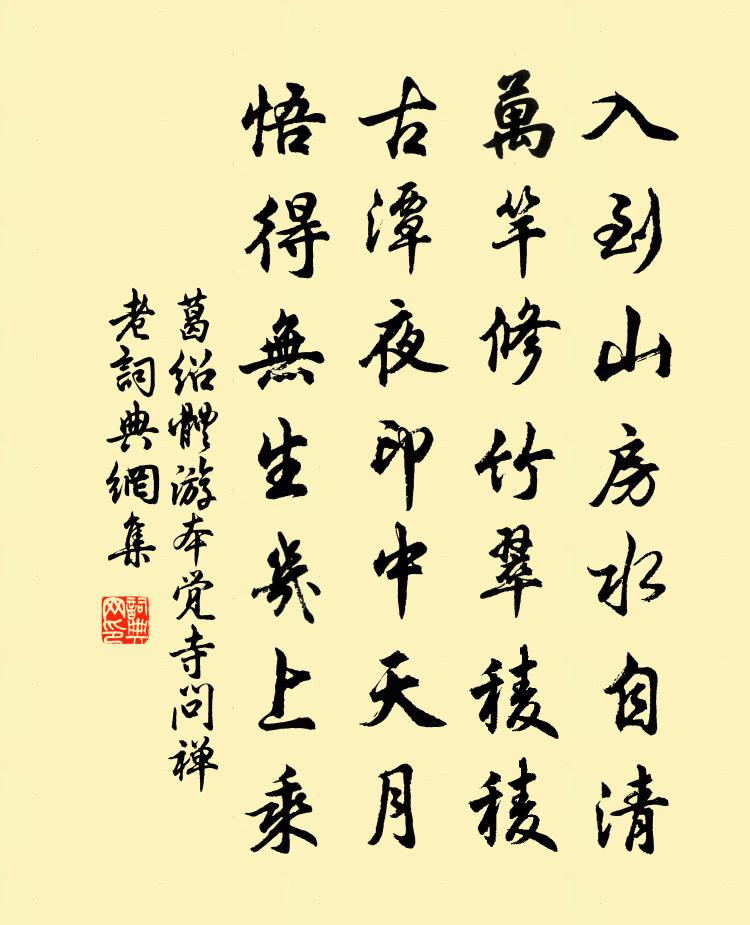 入到山房水自清
萬竿修竹翠稜稜
古潭夜印中天月
悟得無生幾上乘
葛绍體游本覺寺問禅
老詞典網集
詞典网印